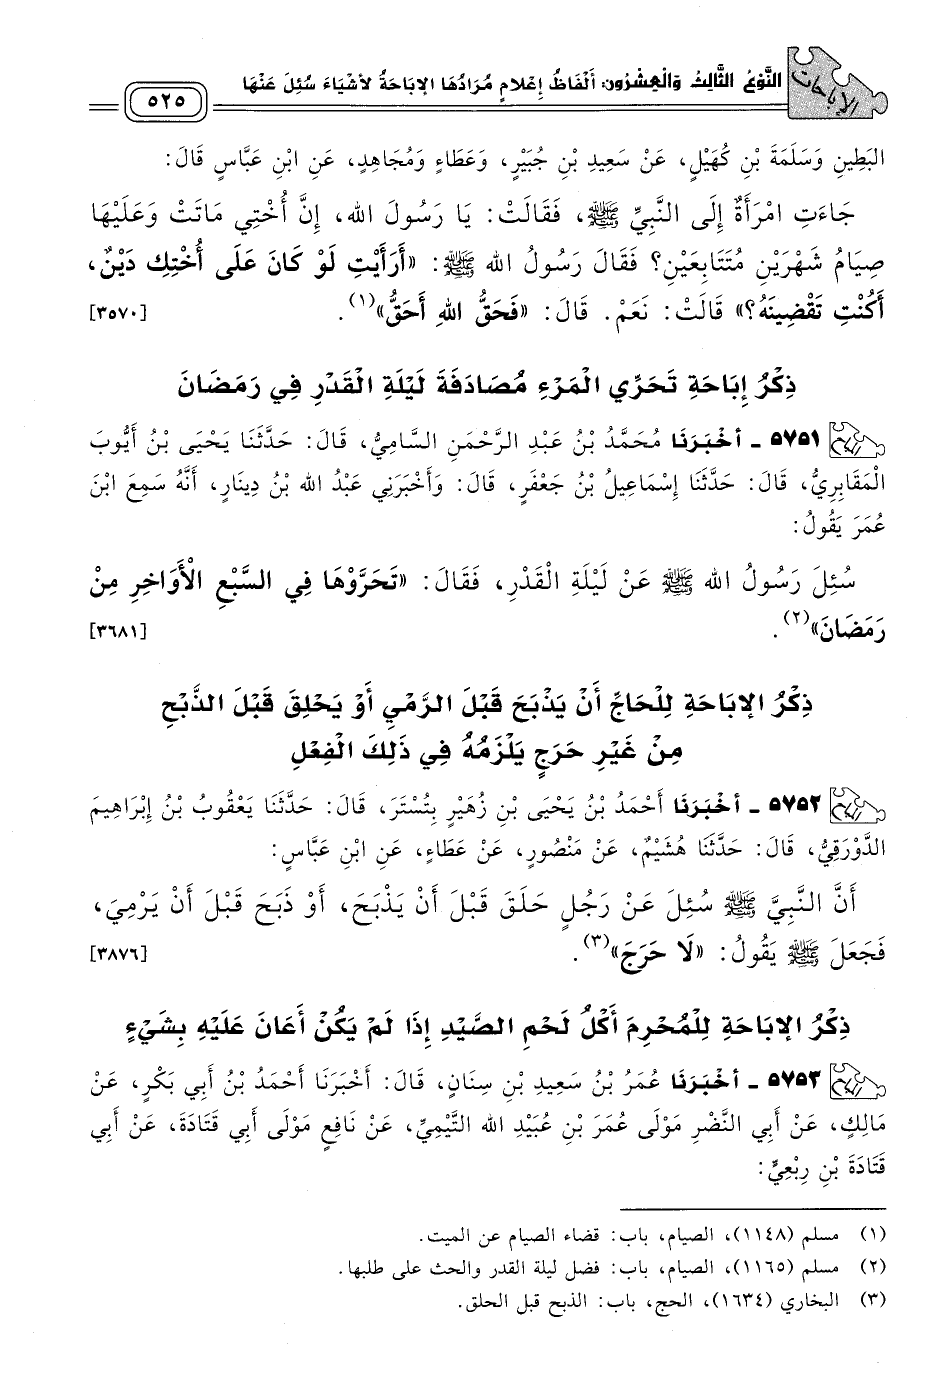 الإباحات
النَّوْعُ الثَّالِثُ وَالْعِشْرُون: أَلْفَاظُ إِعْلَامٍ مُرَادُهَا الإِبَاحَةُ لأَشْيَاءَ سُئِلَ عَنْهَا
٥٢٥
البَطِينِ وَسَلَمَةَ بْنِ كُهَيْلٍ، عَنْ سَعِيدِ بْنِ جُبَيْرٍ، وَعَطَاءٍ وَمُجَاهِدٍ، عَنِ ابْنِ عَبَّاسٍ قَالَ:
جَاءَتِ امْرَأَةٌ إِلَى النَّبِيِّ ﷺ، فَقَالَتْ: يَا رَسُولَ الله، إِنَّ أُخْتِي مَاتَتْ وَعَلَيْهَا
صِيَامُ شَهْرَيْنِ مُتَتَابِعَيْنِ؟ فَقَالَ رَسُولُ الله ﷺ: «أَرَأَيْتِ لَوْ كَانَ عَلَى أُخْتِكِ دَيْنٌ،
أَكُنْتِ تَقْضِينَهُ؟» قَالَتْ: نَعَمْ. قَالَ: «فَحَقُّ اللهِ أَحَقُّ»(١). [٣٥٧٠]
ذِكْرُ إِبَاحَةِ تَحَرِّي الْمَرْءِ مُصَادَفَةَ لَيْلَةِ الْقَدْرِ فِي رَمَضَانَ
٥٧٥١ - أَخْبَرَنَا مُحَمَّدُ بْنُ عَبْدِ الرَّحْمَنِ السَّامِيُّ، قَالَ: حَدَّثَنَا يَحْيَى بْنُ أَيُّوبَ
الْمَقَابِرِيُّ، قَالَ: حَدَّثَنَا إِسْمَاعِيلُ بْنُ جَعْفَرٍ، قَالَ: وَأَخْبَرَنِي عَبْدُ الله بْنُ دِينَارٍ، أَنَّهُ سَمِعَ ابْنَ
عُمَرَ يَقُولُ:
سُئِلَ رَسُولُ الله ﷺ عَنْ لَيْلَةِ الْقَدْرِ، فَقَالَ: «تَحَرَّوْهَا فِي السَّبْعِ الْأَوَاخِرِ مِنْ
رَمَضَانَ»(٢). [٣٦٨١]
ذِكْرُ الإِبَاحَةِ لِلْحَاجِّ أَنْ يَذْبَحَ قَبْلَ الرَّمْيِ أَوْ يَحْلِقَ قَبْلَ الذَّبْحِ
مِنْ غَيْرِ حَرَجٍ يَلْزَمُهُ فِي ذَلِكَ الْفِعْلِ
٥٧٥٢ - أَخْبَرَنَا أَحْمَدُ بْنُ يَحْيَى بْنِ زُهَيْرٍ بِتُسْتَرَ، قَالَ: حَدَّثَنَا يَعْقُوبُ بْنُ إِبْرَاهِيمَ
الدَّوْرَقِيُّ، قَالَ: حَدَّثَنَا هُشَيْمٌ، عَنْ مَنْصُورٍ، عَنْ عَطَاءٍ، عَنِ ابْنِ عَبَّاسٍ:
أَنَّ النَّبِيَّ ﷺ سُئِلَ عَنْ رَجُلٍ حَلَقَ قَبْلَ أَنْ يَذْبَحَ، أَوْ ذَبَحَ قَبْلَ أَنْ يَرْمِيَ،
فَجَعَلَ ﷺ يَقُولُ: «لَا حَرَجَ»(٣). [٣٨٧٦]
ذِكْرُ الإِبَاحَةِ لِلْمُحْرِمِ أَكْلُ لَحْمِ الصَّيْدِ إِذَا لَمْ يَكُنْ أَعَانَ عَلَيْهِ بِشَيْءٍ
٥٧٥٣ - أَخْبَرَنَا عُمَرُ بْنُ سَعِيدِ بْنِ سِنَانٍ، قَالَ: أَخْبَرَنَا أَحْمَدُ بْنُ أَبِي بَكْرٍ، عَنْ
مَالِكٍ، عَنْ أَبِي النَّضْرِ مَوْلَى عُمَرَ بْنِ عُبَيْدِ الله التَّيْمِيِّ، عَنْ نَافِعٍ مَوْلَى أَبِي قَتَادَةَ، عَنْ أَبِي
قَتَادَةَ بْنِ رِبْعِيٍّ:
(١) مسلم (١١٤٨)، الصيام، باب: قضاء الصيام عن الميت.
(٢) مسلم (١١٦٥)، الصيام، باب: فضل ليلة القدر والحث على طلبها.
(٣) البخاري (١٦٣٤)، الحج، باب: الذبح قبل الحلق.